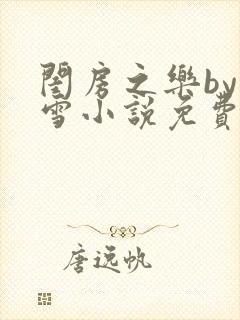 閨房之樂by
雪小說免費
唐逸帆